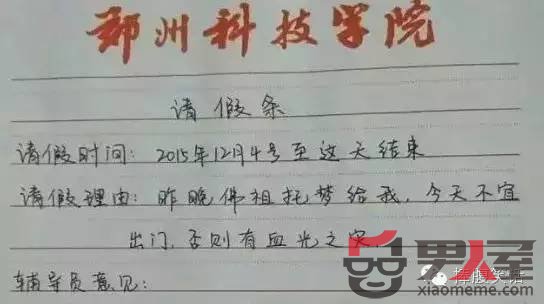 郑州科技学院
请假条
请假时间：2015年12月4号至这天结束
请假理由：昨晚佛祖托梦给我，今天不宜
出门，否则有血光之灾，
辅导员意见：
男人屋
xiaomeme.com